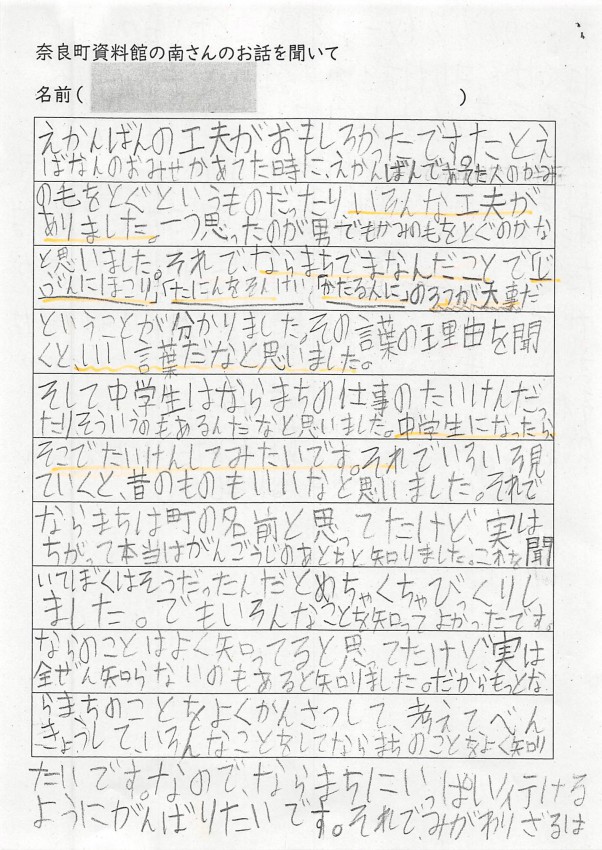 奈良町資料館の南さんのお話を聞いて
名前( )
えかんばんの工夫がおもしろかったです。たとえ
ばなんのおみせかあてた時に、えかんばんで
の毛をとぐというものだったりいろんな工夫が
ありました。一つ思ったのが男でもかみのもをとぐのかな
と思いました。それで、ならまちでまなんだことで「じ
ぶんにほこり」「たにんをそんけい「かたるんに」のろつが大事だ
ということが分かりました。その言葉の理由を聞
くと、いい言葉だなと思いました。
そして中学生はならまちの仕事のたいけんだっ
たり、そういうのもあるんだなと思いました。中学生になったら、
そこでたいけんしてみたいです。それでいろいろ見
ていくと、昔のものもいいなと思いました。それで
ならまちは町の名前と思ってたけど、実は
ちがって本当はがんごうじのあとちと知りました。これを聞
いてぼくはそうだったんだとめちゃくちゃびっくりし
ました。でもいろんなことを知ってよかったです。
ならのことはよく知ってると思ってたけど、実は
全ぜん知らないのもあると知りました。だからもっとな
らまちのことをよくかんさつして、考えてべん
きょうして、いろんなことをしてならまちのことをよく知り
たいです。なので、ならまちにいっぱい行ける
ようにがんばりたいです。それで、みがわりざるは